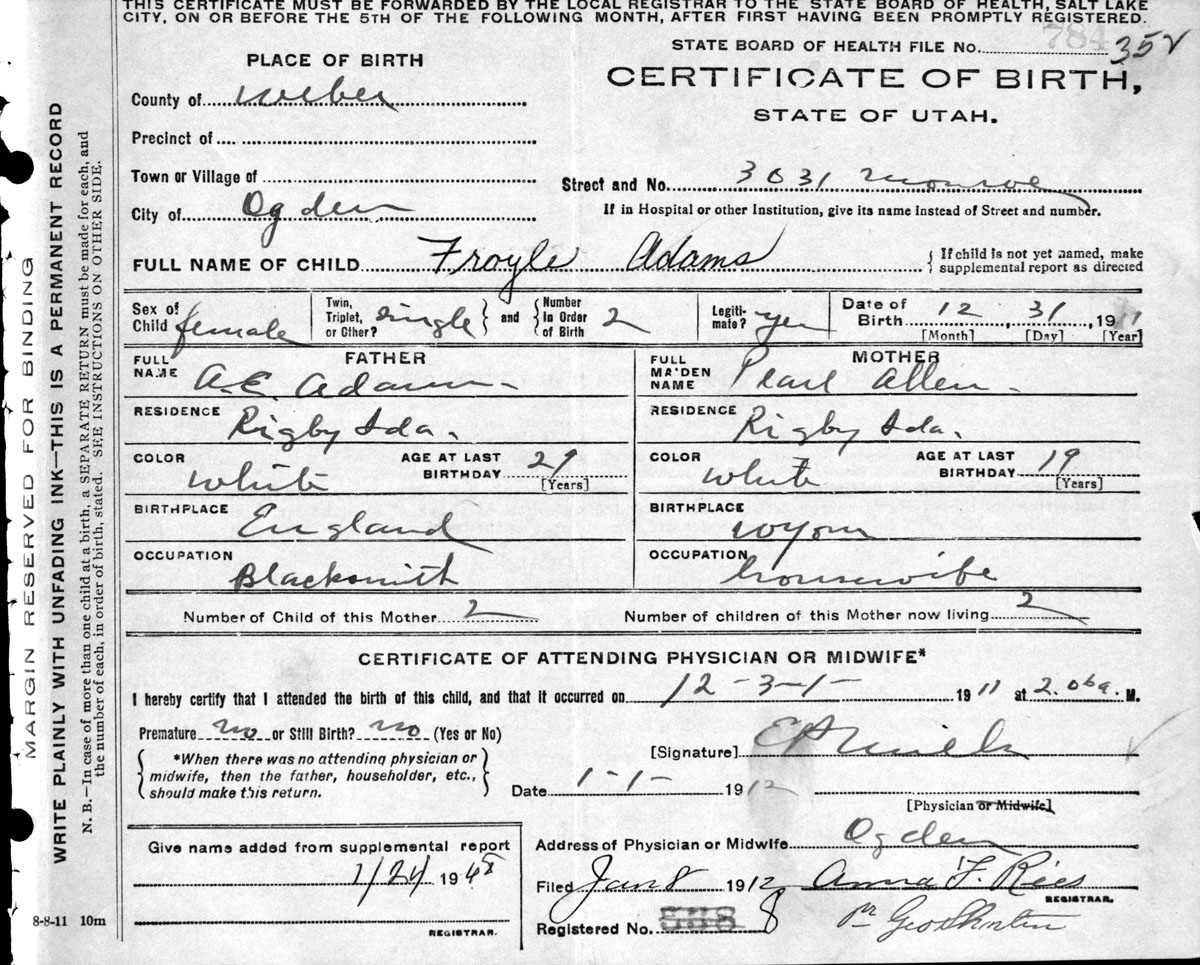 THIS CERTIFICATE MUST BE FORWARDED BY THE LOCAL REGISTRAR TO THE STATE BOARD OF HEALTH, SALT LAKE
CITY, ON OR BEFORE THE 5TH OF THE FOLLOWING MONTH, AFTER FIRST HAVING BEEN PROMPTLY REGISTERED.
STATE BOARD OF HEALTH FILE No. 784 352
PLACE OF BIRTH
CERTIFICATE OF BIRTH,
STATE OF UTAH.
County of Weber
Precinct of
Town or Village of
Street and No. 3031 Monroe
City of Ogden
If in Hospital or other Institution, give its name instead of Street and number.
FULL NAME OF CHILD Froyle Adams
{ If child is not yet named, make supplemental report as directed
Sex of Child female
Twin, Triplet, or Other? single } and { Number In Order of Birth 2
Legitimate? yes
Date of Birth 12, 31, 1911
[Month] [Day] [Year]
FATHER
FULL NAME A.E. Adams
MOTHER
FULL MAIDEN NAME Pearl Allen
RESIDENCE Rigby Ida.
RESIDENCE Rigby Ida.
COLOR White AGE AT LAST BIRTHDAY 29 [Years]
COLOR White AGE AT LAST BIRTHDAY 19 [Years]
BIRTHPLACE England
BIRTHPLACE Wyom
OCCUPATION Blacksmith
OCCUPATION housewife
Number of Child of this Mother 2
Number of children of this Mother now living 2
CERTIFICATE OF ATTENDING PHYSICIAN OR MIDWIFE*
I hereby certify that I attended the birth of this child, and that it occurred on 12-3-1- 1911 at M.
Premature no or Still Birth? no (Yes or No)
[Signature]
{ *When there was no attending physician or midwife, then the father, householder, etc., should make this return. }
Date 1-1- 1912
[Physician or Midwife]
Give name added from supplemental report
1/24 1948
REGISTRAR.
Address of Physician or Midwife Ogden
Filed Jan 8 1912 Anna F. Rees
REGISTRAR.
Registered No. 588 8
8-8-11 10m
MARGIN RESERVED FOR BINDING
WRITE PLAINLY WITH UNFADING INK—THIS IS A PERMANENT RECORD
N. B.—In case of more than one child at a birth, a SEPARATE RETURN must be made for each, and
the number of each, in order of birth, stated. SEE INSTRUCTIONS ON OTHER SIDE.